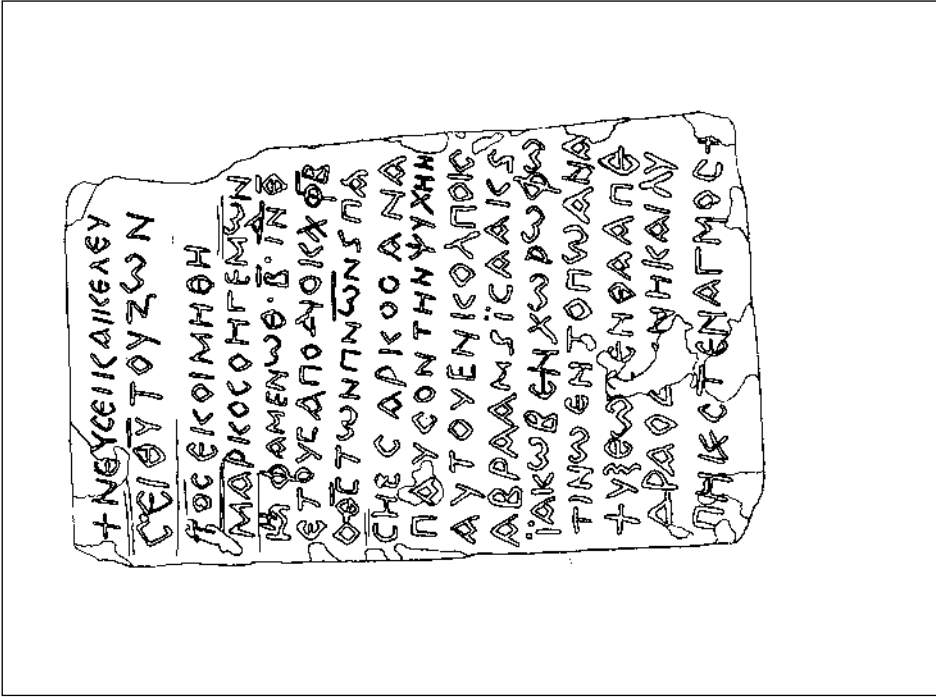 +ΝΘΥϹΕΙΙϹΑΙΚΕΛΕΥ
ϹΕΙΘ̅Υ̅ΤΟΥΖΩΝ
ΤΟϹΕΚΟΙΜΗΘΗ
ΜΑΡΚΟϹΟΗΓΕΜΩΝ
Μ ΦΑΜΕΝΩΘ·Β̅·ΙΝΔ Θ̅
ΕΤΟΥϹΑΠΟΔΙΟΙΚΧΦΒ̅
ΟΘ̅ΕΤΩΝΠΝΩΝSΠΑ
ϹΗϹϹΑΡΙΚΟΟΑΝΑ
ΠΑΥϹΟΝΤΗΝΨΥΧΗΝ
ΑΥΤΟΥΕΝΙΚΟΛΠΟΙϹ
ΑΒΡΑΑΜSΪϹΑΑΙΚS
ΪΑΚΩΒΕΝΧΩΡΩΦΩ
ΤΙΝΩΕΝΤΟΠΩΑΝΑ
ΨΥΞΕΩϹΕΝΘΑΑΠΕ
ΔΡΑΟΔ ΝΗΚΑΙΛΥ
ΠΗΚϹΤΕΝΑΓΜΟϹ+